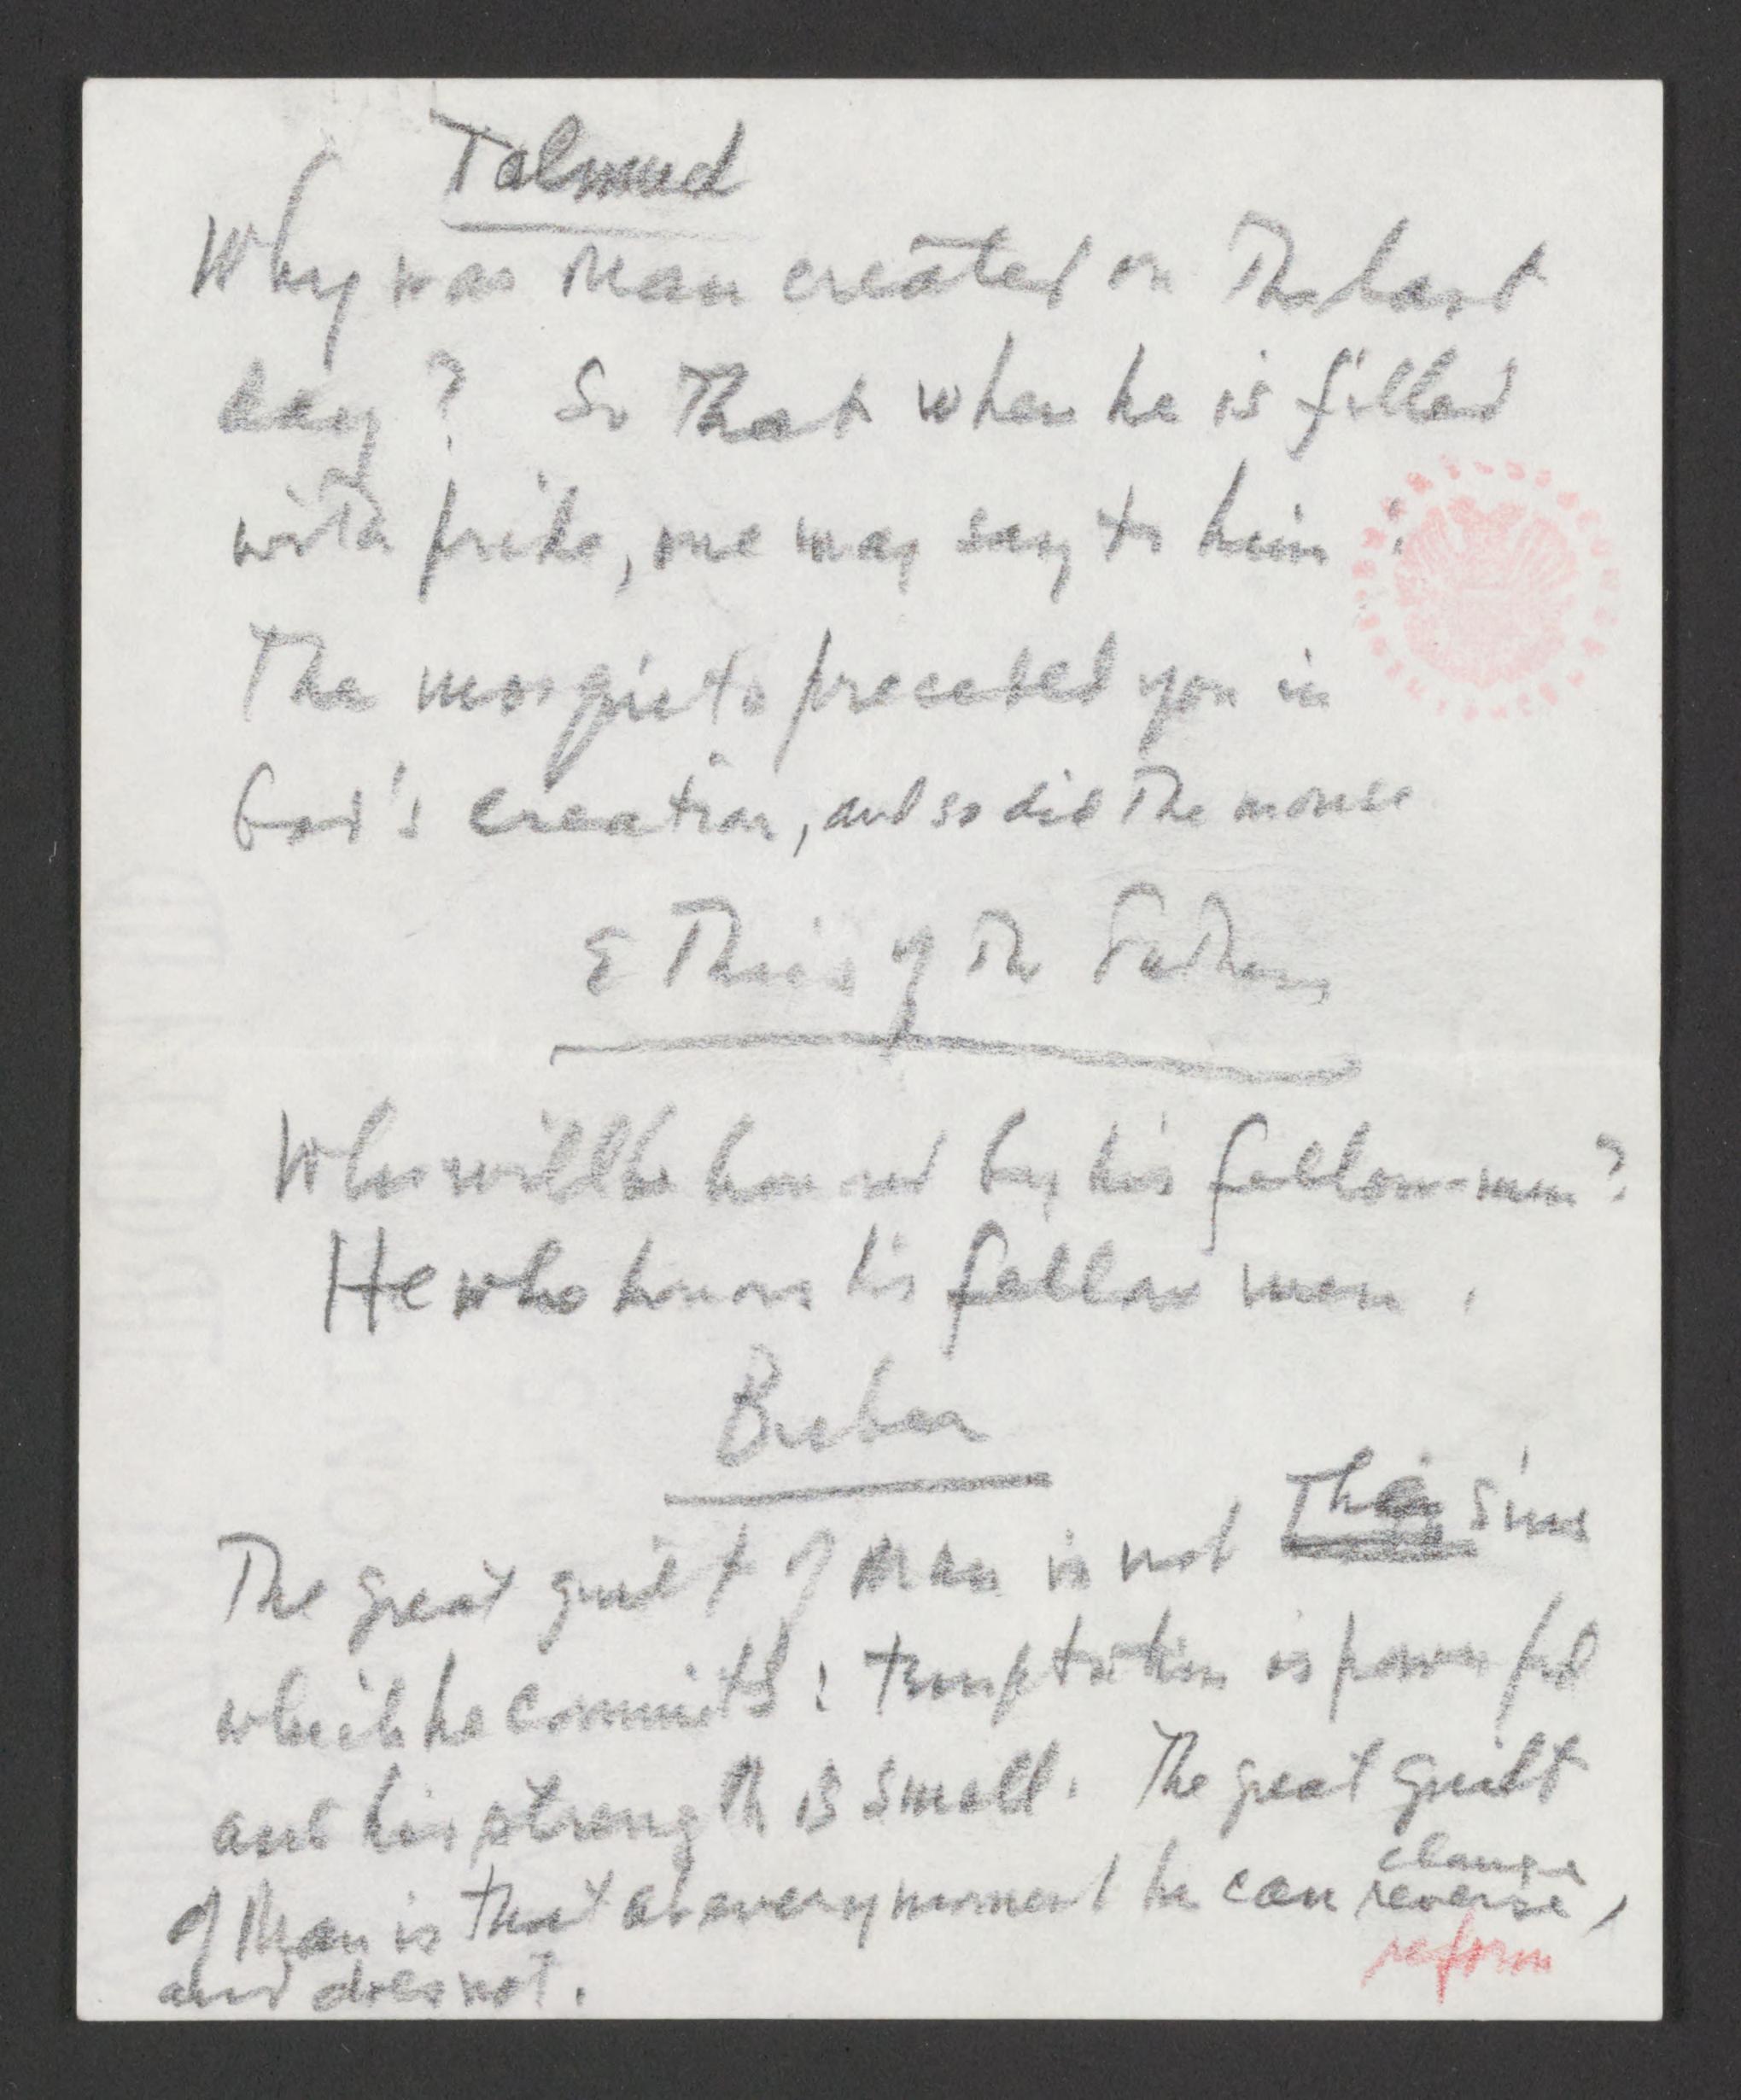 Talmud
Why was Man created on The last
day? So That when he is filled
with pride, one may say to him:
The mosquito preceded you in
God's creation, and so did The mouse
EThics of The Fathers
Who will be honored by his fellow-men?
He who honors his fellow men.
Buber
The great guilt of man is not sins
which he commits: temptation is powerful
and his strength is small. The great guilt
change
of Man is that at every moment he can reverse,
reform
and does not.